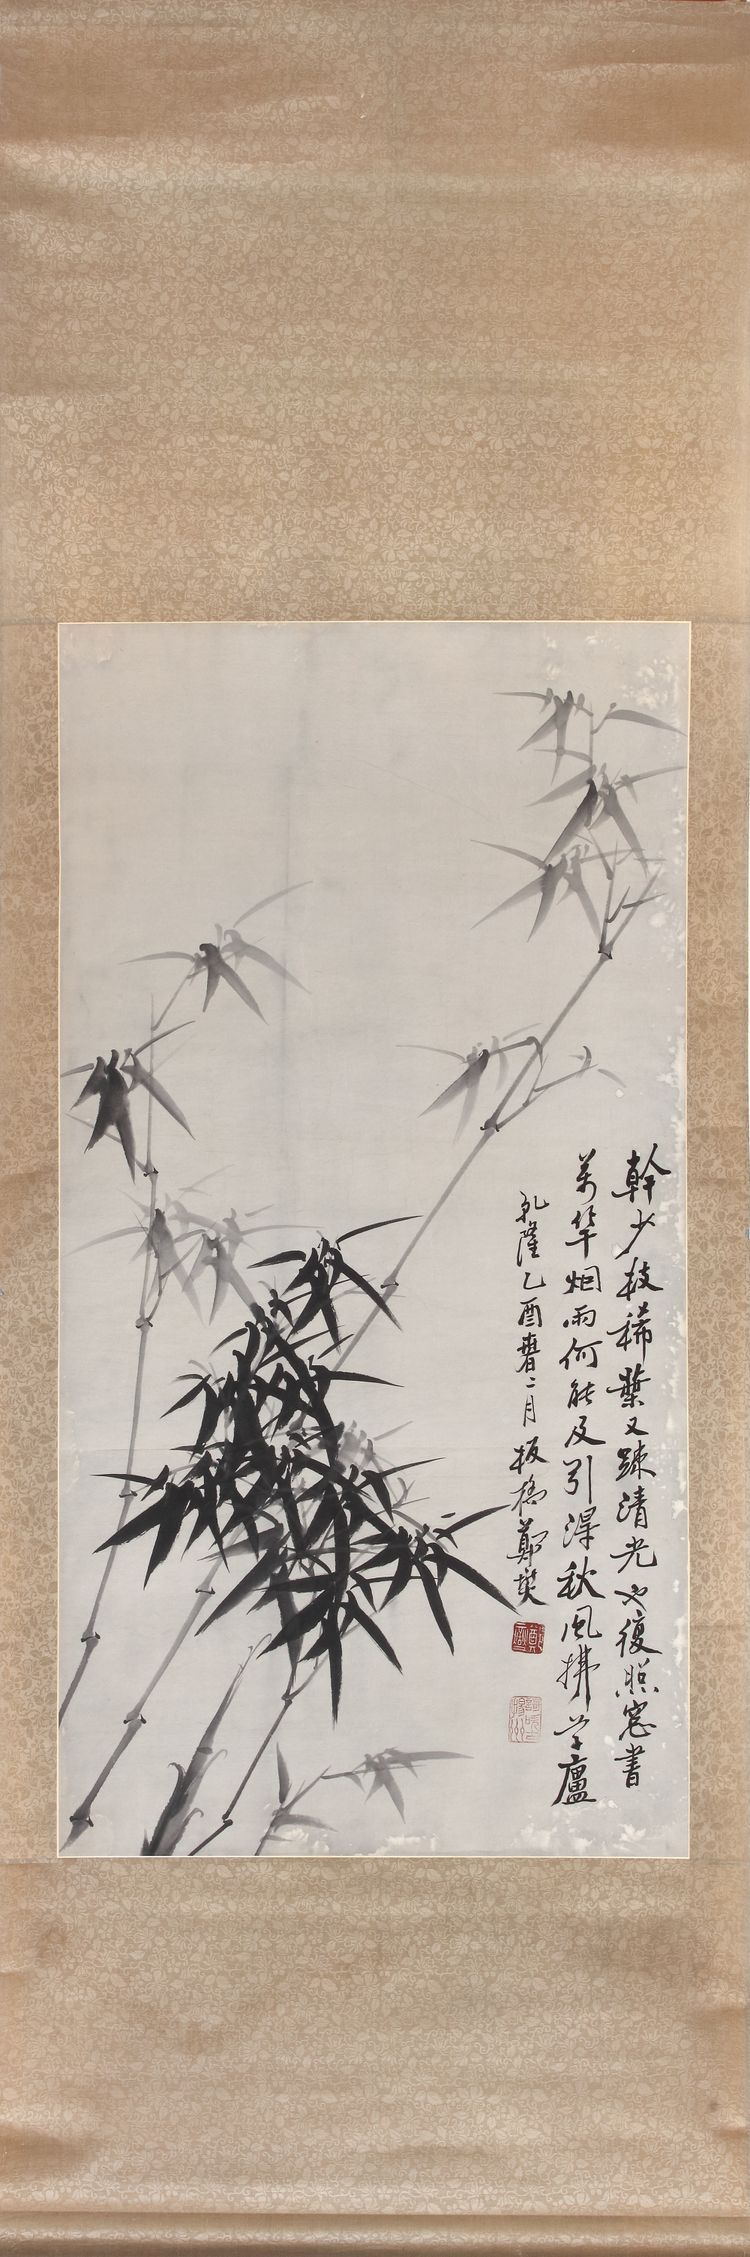 幹少枝稀葉又疎清光也復照窓書
萬竿烟雨何能及引得秋風拂草廬
乹隆乙酉春二月板橋鄭燮